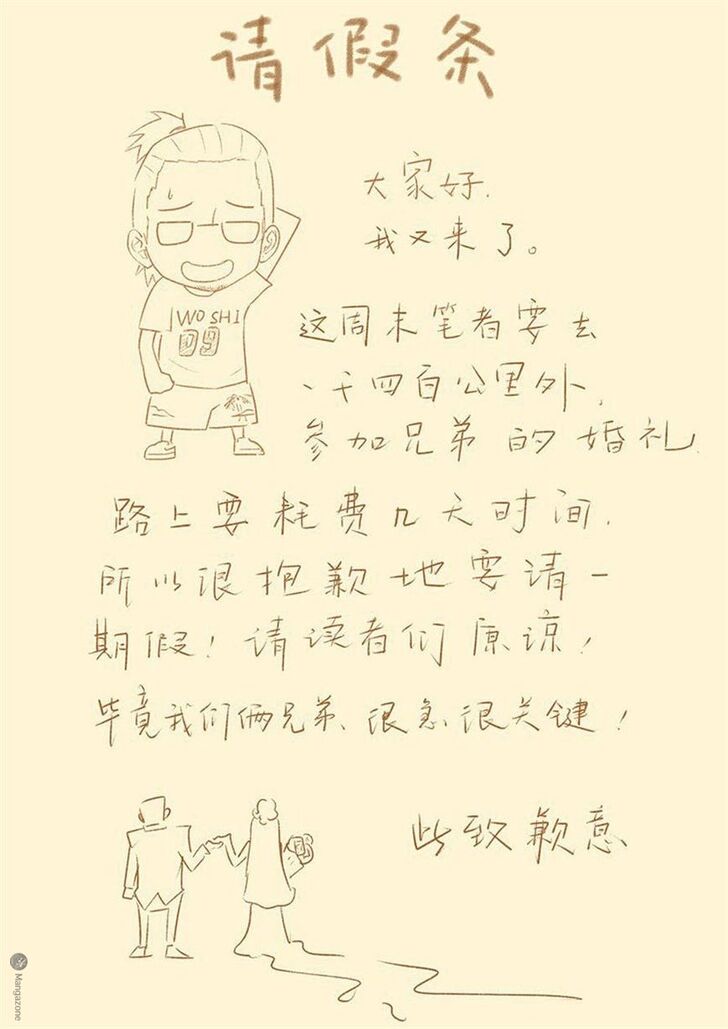 请假条
大家好.
我又来了。
WO SHI
09
这周末笔者要去
一千四百公里外,
参加兄弟的婚礼
路上要耗费几天时间.
所以很抱歉地要请一
期假！请读者们原谅！
毕竟我们俩兄弟、很急、很关键！
此致歉意
Mangazone